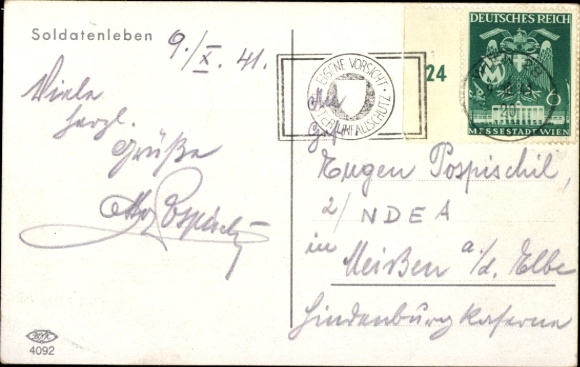 Soldatenleben
9./X. 41.
Viele
herzl.
Grüße
Otto Pospischil
EIGENE VORSICHT
BESTER UNFALLSCHUTZ
24
DEUTSCHES REICH
6
MESSESTADT WIEN
WIEN
An
Eugen Pospischil,
2/NDEA
in
Meißen a./d. Elbe
Hindenburgkaserne
4092